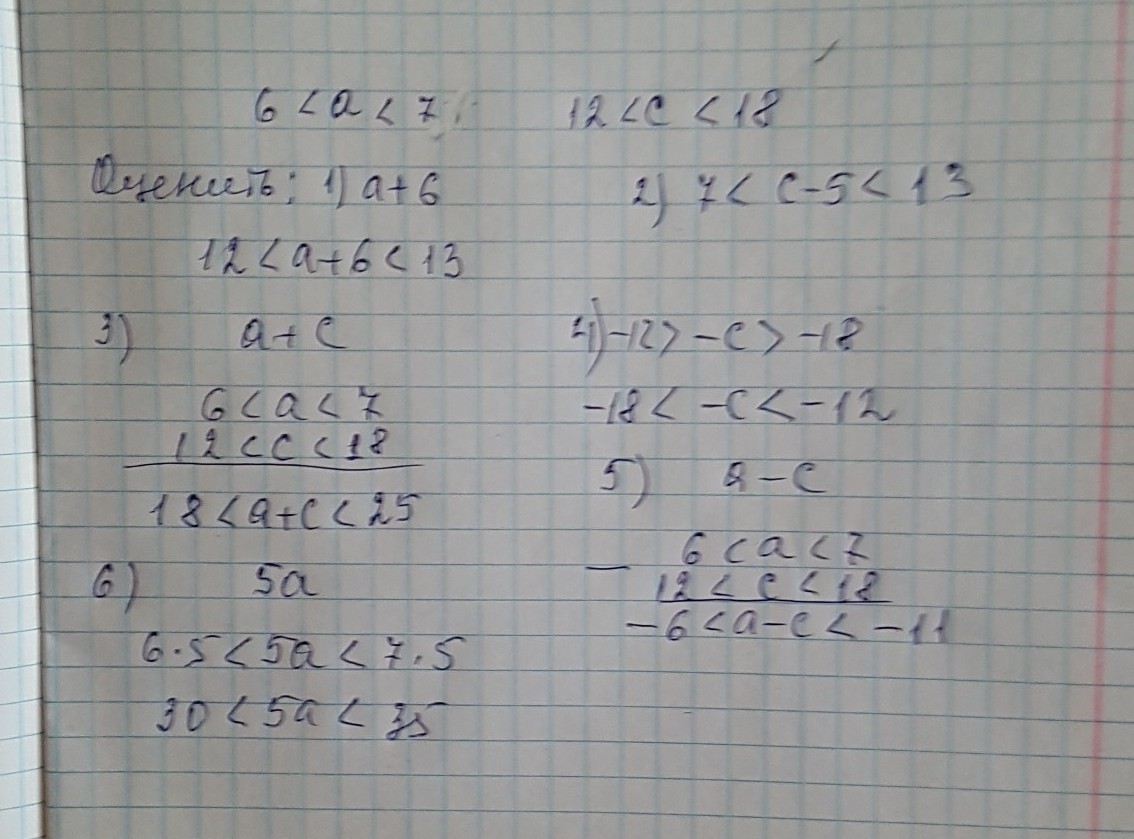 6 < a < 7 12 < c < 18
Оценить: 1) a+6 2) 7 < c-5 < 13
12 < a+6 < 13
3) a+c
6 < a < 7
12 < c < 18
18 < a+c < 25
4) -12 > -c > -18
-18 < -c < -12
5) a-c
- 6 < a < 7
12 < c < 18
-6 < a-c < -11
6) 5a
6·5 < 5a < 7·5
30 < 5a < 35